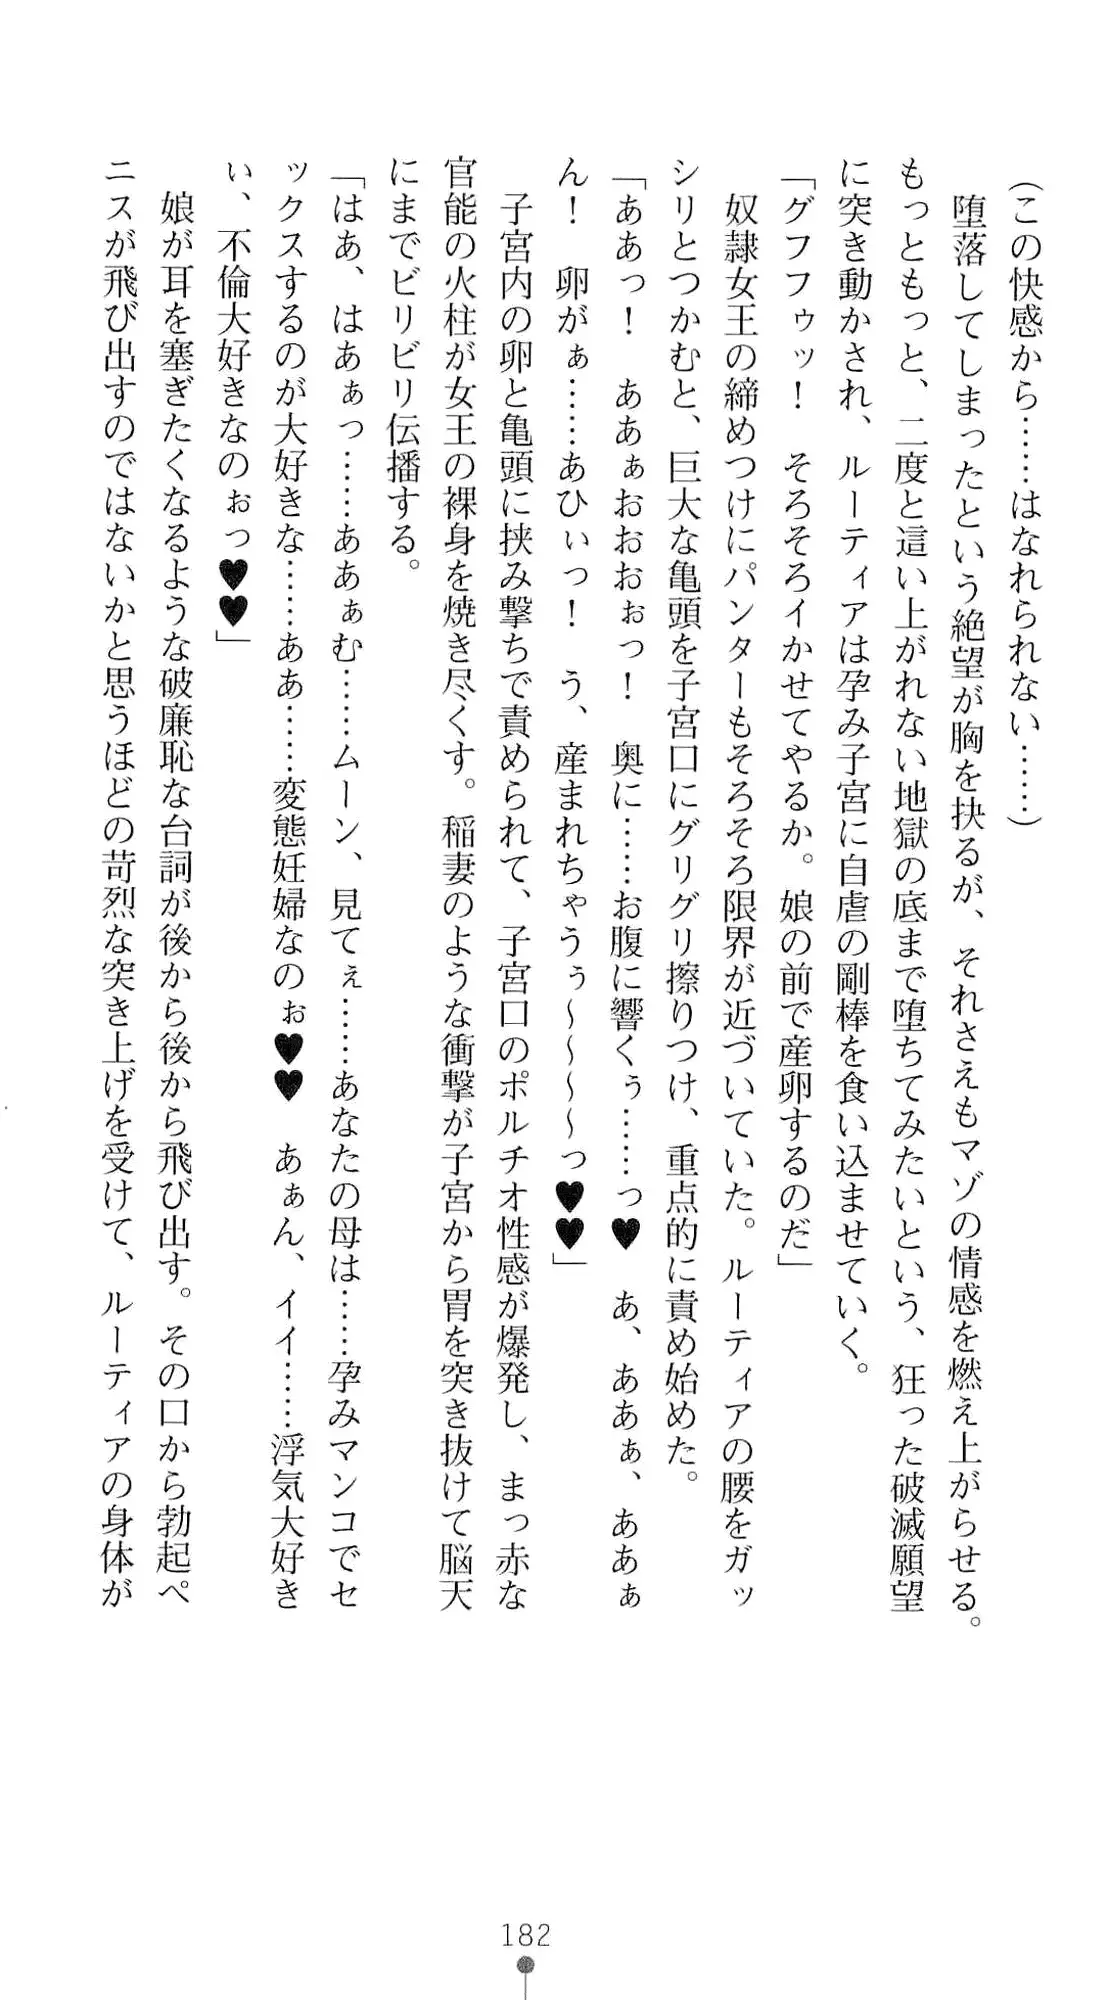 (この快感から……はなれられない……)
堕落してしまったという絶望が胸を抉るが、それさえもマゾの情感を燃え上がらせる。
もっともっと、二度と這い上がれない地獄の底まで堕ちてみたいという、狂った破滅願望
に突き動かされ、ルーティアは孕み子宮に自虐の剛棒を食い込ませていく。
「グフフゥッ！　そろそろイかせてやるか。娘の前で産卵するのだ」
奴隷女王の締めつけにパンターもそろそろ限界が近づいていた。ルーティアの腰をガッ
シリとつかむと、巨大な亀頭を子宮口にグリグリ擦りつけ、重点的に責め始めた。
「ああっ！　ああぁおおおぉっ！　奥に……お腹に響くぅ……っ♥　あ、ああぁ、ああぁ
ん！　卵がぁ……あひぃっ！　う、産まれちゃうぅ～～～～っ♥♥」
子宮内の卵と亀頭に挟み撃ちで責められて、子宮口のポルチオ性感が爆発し、まっ赤な
官能の火柱が女王の裸身を焼き尽くす。稲妻のような衝撃が子宮から胃を突き抜けて脳天
にまでビリビリ伝播する。
「はあ、はあぁっ……ああぁむ……ムーン、見てぇ……あなたの母は……孕みマンコでセ
ックスするのが大好きな……ああ……変態妊婦なのぉ♥♥　あぁん、イイ……浮気大好き
ぃ、不倫大好きなのぉっ♥♥」
娘が耳を塞ぎたくなるような破廉恥な台詞が後から後から飛び出す。その口から勃起ペ
ニスが飛び出すのではないかと思うほどの苛烈な突き上げを受けて、ルーティアの身体が
182